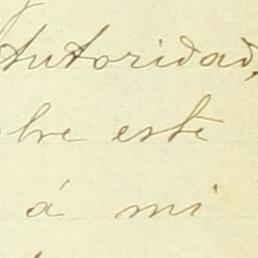 Autoridad,
bre este
á mi